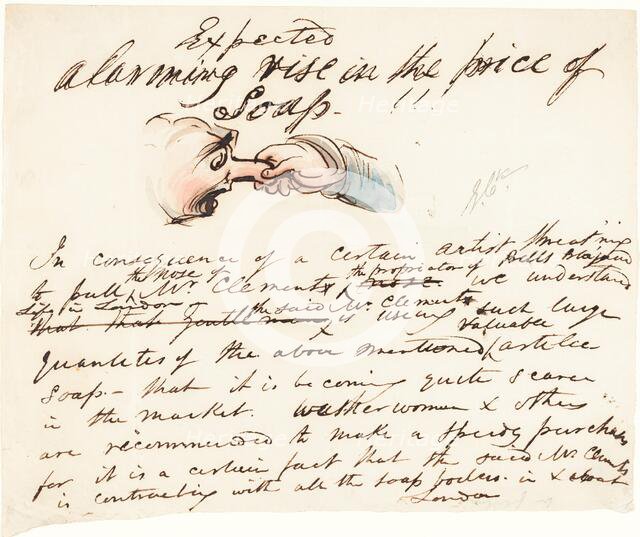 Expected
alarming rise in the price of
Soap - !!!
In consequence of a certain artist threat'ning
the nose of the proprietor of Bells
to pull Mr Clements, nose we understand
Life in London the said Mr Clements
that that Gentleman is using such large
valuable
quantities of the above mentioned article
Soap - that it is becoming quite scarce
in the market. Washerwomen & others
are recommended to make a speedy purchase
for it is a certain fact that the said Mr Clements
is contracting with all the soap boilers in & about
London